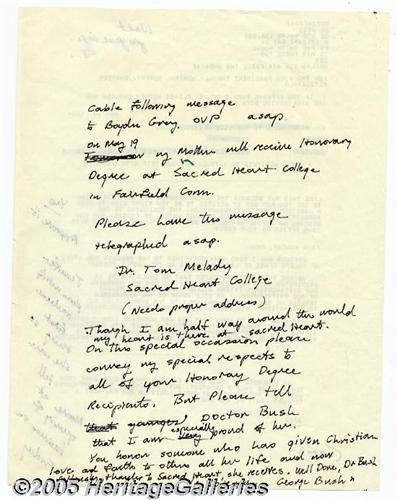 Cable Following message
to Boyden Grey, OVP asap.
on May 19
my Mother will receive Honorary
Degree at Sacred Heart College
in Fairfield Conn.
Please have this message
telegraphed asap.
Dr. Tom Melady
Sacred Heart College
(Needs proper address)
Though I am half way around the world
my heart is there at Sacred Heart.
On this special occassion please
convey my special respects to
all of your Honoray Degree
Recipients. But Please tell
Doctor Bush
especially
that I am very proud of her.
You honor someone who has given Christian
love and faith to others all her life and now
thanks to Sacred Heart she receives. Well Done, Dr Bush
George Bush"
©2005 HeritageGalleries